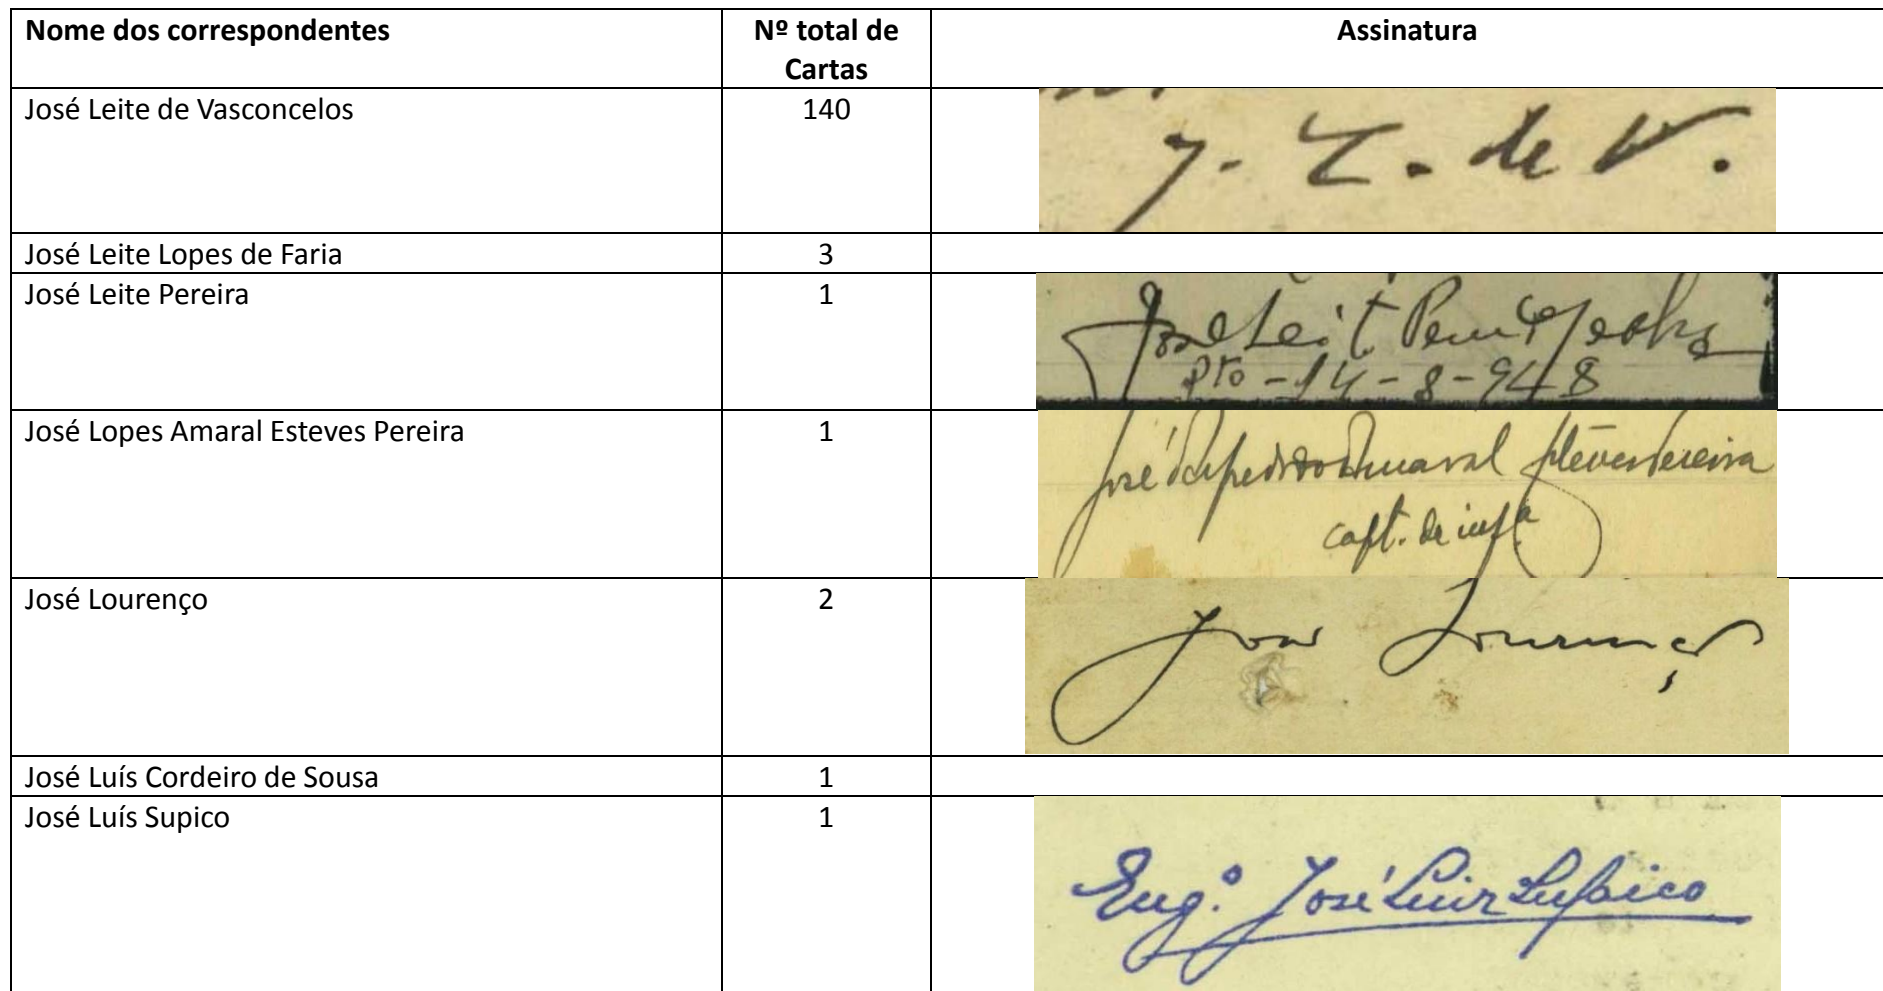 Nome dos correspondentes
Nº total de
Cartas
Assinatura
José Leite de Vasconcelos
140
J. L. de V.
José Leite Lopes de Faria
3
José Leite Pereira
1
José Leit
Pto - 14 - 8 - 948
José Lopes Amaral Esteves Pereira
1
José Amaral Esteves Pereira
capt. de inf.a
José Lourenço
2
José Lourenço
José Luís Cordeiro de Sousa
1
José Luís Supico
1
Eng.º José Luiz Supico